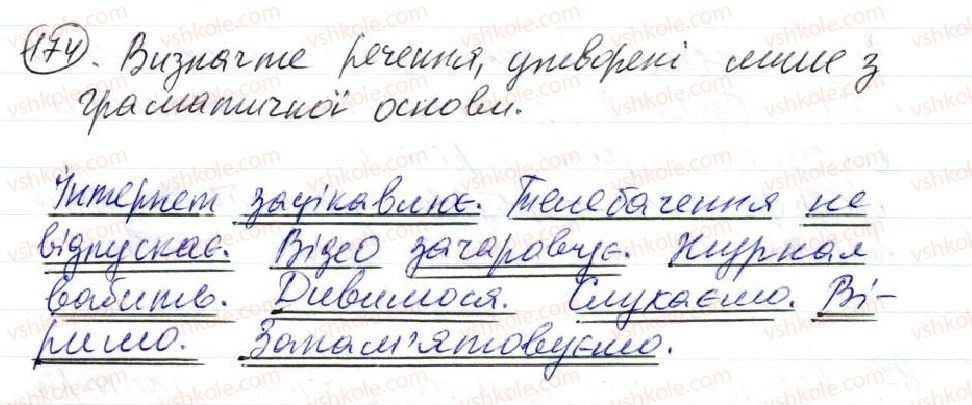 174. Визначте речення, утворені лише з
граматичної основи.
Інтернет зацікавлює. Телебачення не
відпускає. Відео зачаровує. Журнал
вабить. Дивимося. Слухаємо. Ві-
римо. Запам'ятовуємо.